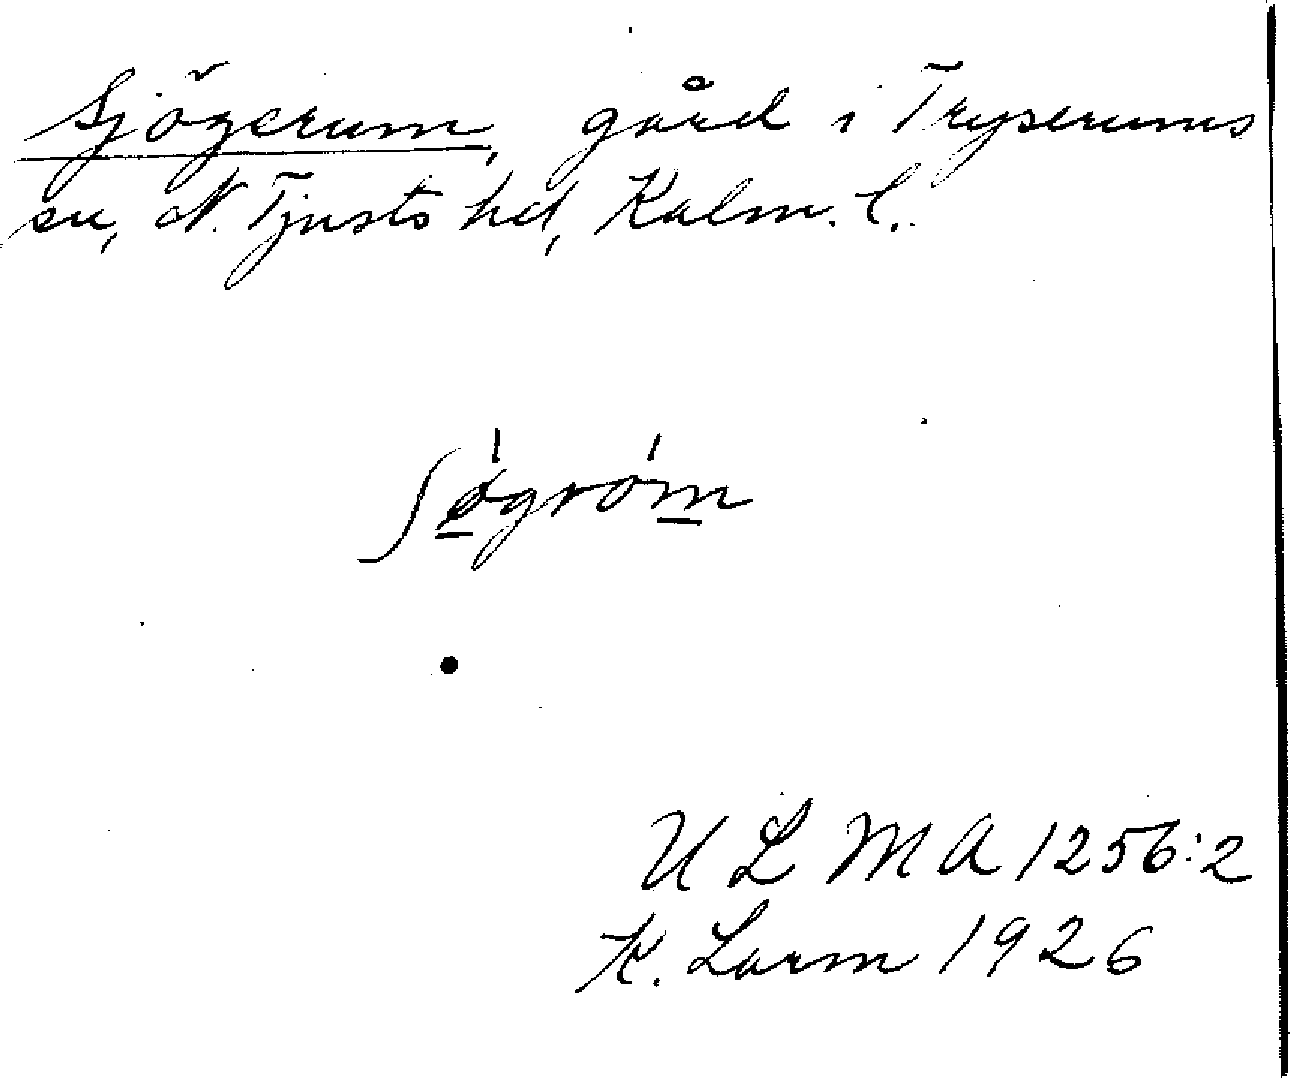 Sjögerum, gård i Tryserums
sn, N. Tjusts hd, Kalm. l.
ʃøgrom
U L M A 1256:2
K. Larm 1926